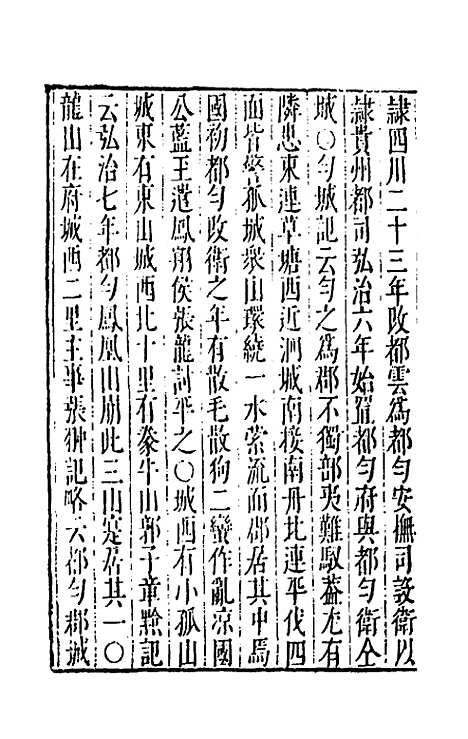 隸四川二十三年改都雲爲都勻安撫司設衛以
隸貴州都司弘治六年始置都勻府與都勻衛仝
城〇勻城記云勻之爲郡不獨部夷難馭葢尤有
隣患東連草塘西近泗城南接南丹北連平伐四
面皆警孤城衆山環繞一水縈流而郡居其中焉
國初都勻改衛之年有散毛散狗二蠻作亂凉國
公藍王遣鳳翔侯張龍討平之〇城西有小孤山
城東有東山城西北十里有豢牛山郭子章黔記
云弘治七年都勻鳳凰山崩此三山寔居其一〇
龍山在府城西二里主事張狆記略云都勻郡城